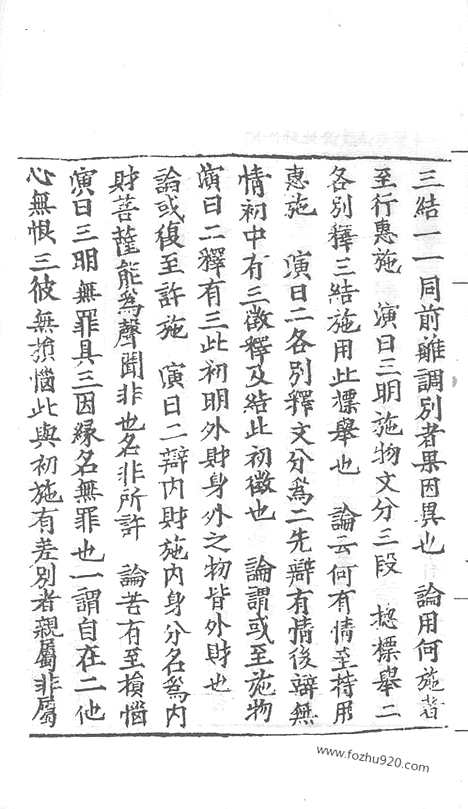 三結一一同前雖調別者果因異也　論用何施者
至行惠施　演曰三明施物文分三段　揔標舉二
各別釋三結施用此標舉也　論云何有情至持用
惠施　演曰二各別釋文分爲二先辯有情後辯無
情初中有三徵釋及結此初徵也　論謂或至施物
演曰二釋有三此初明外財身外之物皆外財也
論或復至許施　演曰二辯内財施内身分名爲内
財菩薩能爲聲聞非也名非所許　論若有至損惱
演曰三明無罪具三因緣名無罪也一謂自在二他
心無恨三彼無損惱此與初施有差別者親屬非屬
www.fozhu920.com